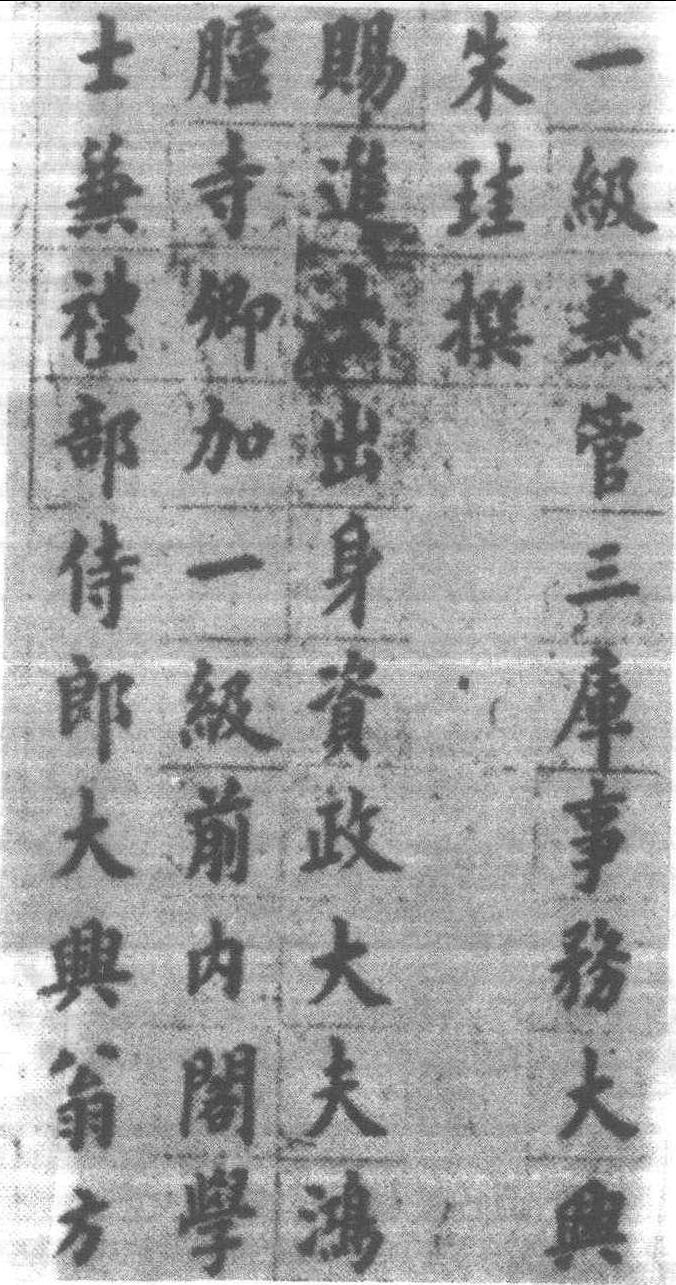 一級兼管三庫事務大興
朱珪撰
賜進士出身資政大夫鴻
臚寺卿加一級前内閣學
士兼禮部侍郎大興翁方